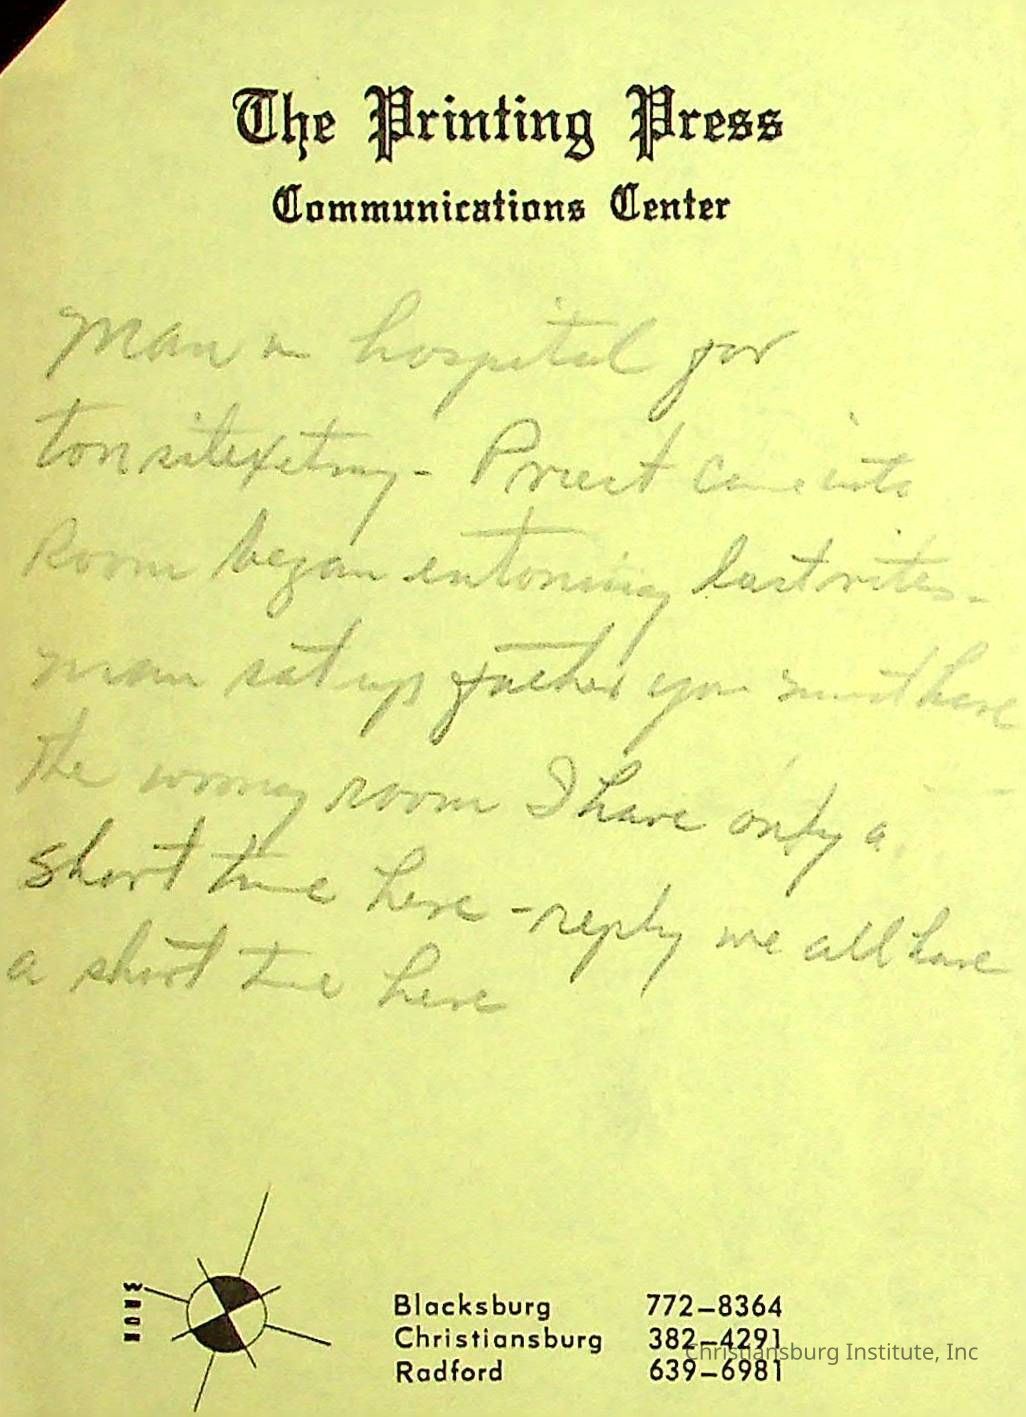 The Printing Press
Communications Center
Man in hospital for
Priest came into
Room began entoning last rites -
man sat up father you must have
the wrong room I have only a
short time here - reply we all have
a short time here
Blacksburg 772-8364
Christiansburg 382-4291
Radford 639-6981
Christiansburg Institute, Inc